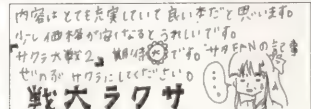 内容はとても充実していて良い本だと思います。
少し価格が安くなるとうれしいです。
サクラ大戦2 期待◎です。サタFANの記事
ぜんぶ サクラにしてください。
サクラ大戦